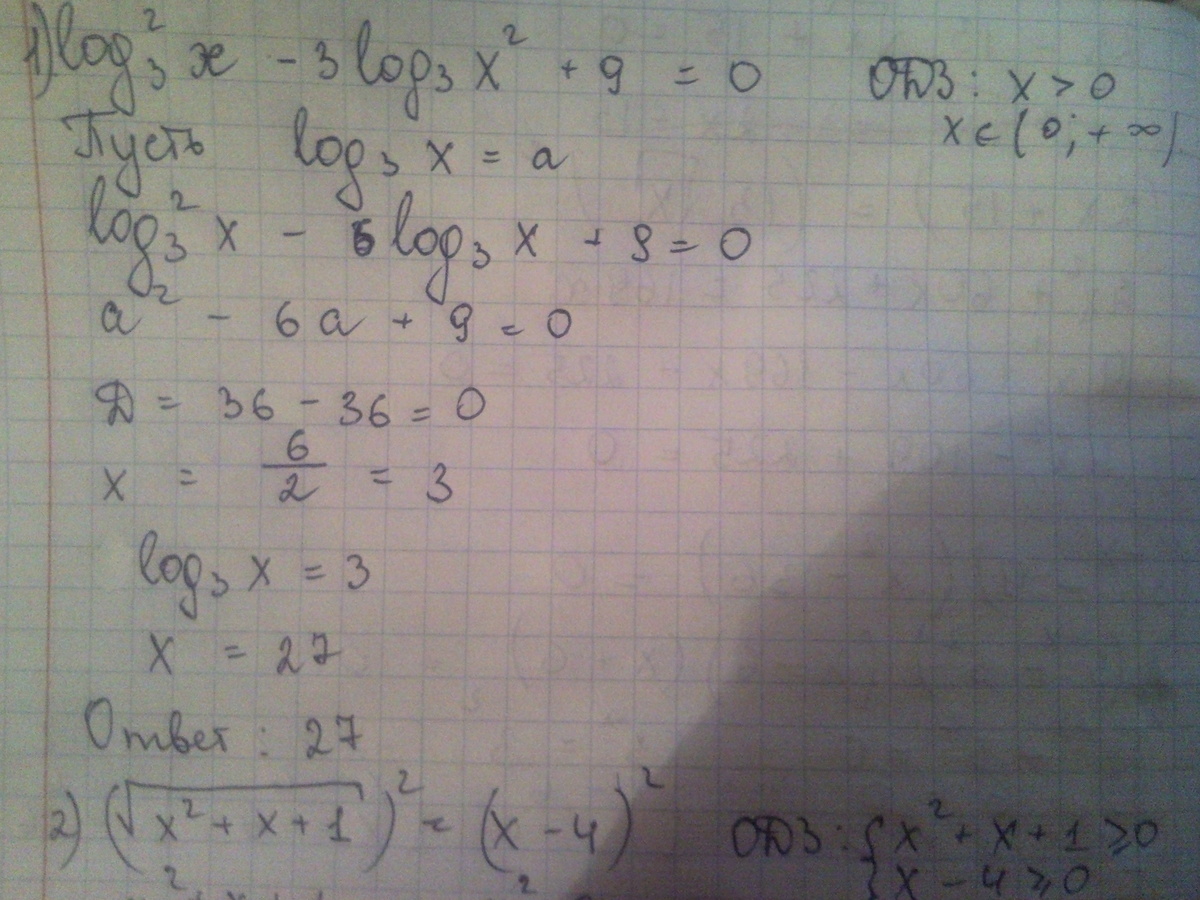 1) log₃² x - 3 log₃ x² + 9 = 0 ОДЗ: x > 0
x ∈ (0; + ∞)
Пусть log₃ x = a
log₃² x - 6 log₃ x + 9 = 0
a² - 6a + 9 = 0
Д = 36 - 36 = 0
x = 6/2 = 3
log₃ x = 3
x = 27
Ответ: 27
2) (√(x² + x + 1))² = (x - 4)² ОДЗ: { x² + x + 1 ≥ 0
x - 4 ≥ 0